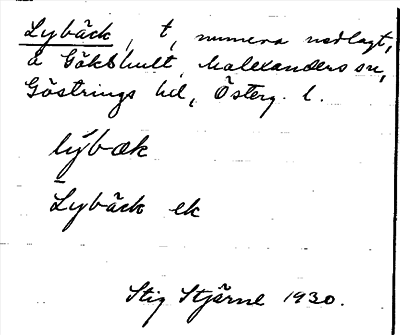 Lybäck, t, numera nedlagt,
å Gökshult Malexanders sn,
Göstrings hd, Österg. l.
lýbæk
Lybäck ek
Stig Stjärne 1930.